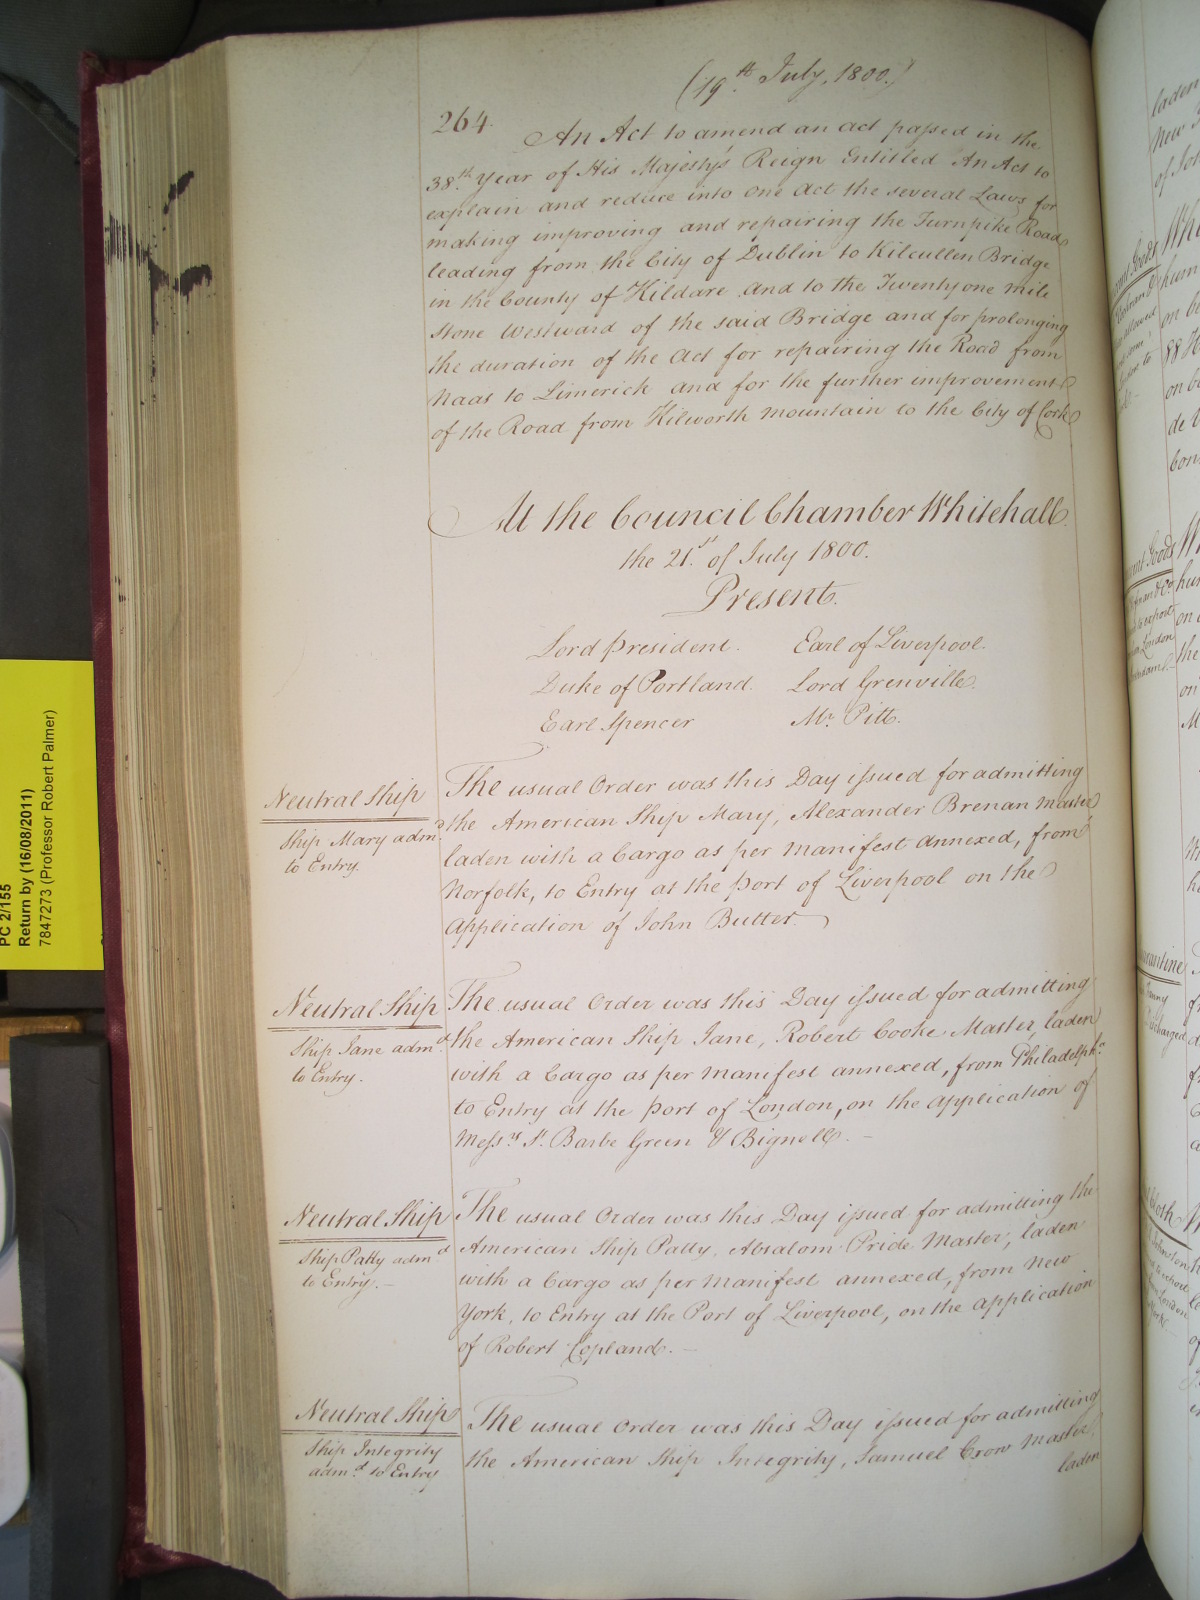 (19th July, 1800.)
264.
An Act to amend an act passed in the
38th Year of His Majesty's Reign Entitled "An Act to
explain and reduce into one Act the several Laws for
making improving and repairing the Turnpike Road
leading from the City of Dublin to Kilcullen Bridge
in the County of Kildare and to the Twenty one mile
stone Westward of the said Bridge and for prolonging
the duration of the Act for repairing the Road from
Naas to Limerick and for the further improvement
of the Road from Kilworth Mountain to the City of Cork
At the Council Chamber Whitehall
the 21st of July 1800.
Present.
Lord President. Earl of Liverpool.
Duke of Portland. Lord Grenville.
Earl Spencer Mr. Pitt.
Neutral Ship
Ship Mary admd.
to Entry.
The usual Order was this Day issued for admitting
the American Ship Mary, Alexander Brenan Master
laden with a Cargo as per Manifest annexed, from
Norfolk, to Entry at the Port of Liverpool on the
Application of John Butter.
Neutral Ship
Ship Jane admd.
to Entry.
The usual Order was this Day issued for admitting
the American Ship Jane, Robert Cooke Master, laden
with a Cargo as per Manifest annexed, from Philadelpha.
to Entry at the Port of London, on the Application of
Messrs. St. Barbe Green & Bignell. -
Neutral Ship
Ship Patty admd.
to Entry. -
The usual Order was this Day issued for admitting the
American Ship Patty, Absalom Pride Master, laden
with a Cargo as per Manifest annexed, from New
York, to Entry at the Port of Liverpool, on the Application
of Robert Copland. -
Neutral Ship
Ship Integrity
admd. to Entry
The usual Order was this Day issued for admitting
the American Ship Integrity, Samuel Crow Master,
laden
PC 2/155
Return by (16/08/2011)
7847273 (Professor Robert Palmer)